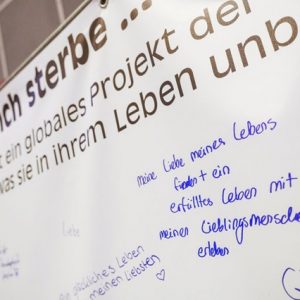 ich sterbe ...
ein globales Projekt der
was sie in ihrem Leben unb
meine Liebe meines Lebens
finden + ein
erfülltes Leben mit
meinen Lieblingsmensche
erleben
Liebe
Ein glückliches Leben
meinen Liebsten ♡